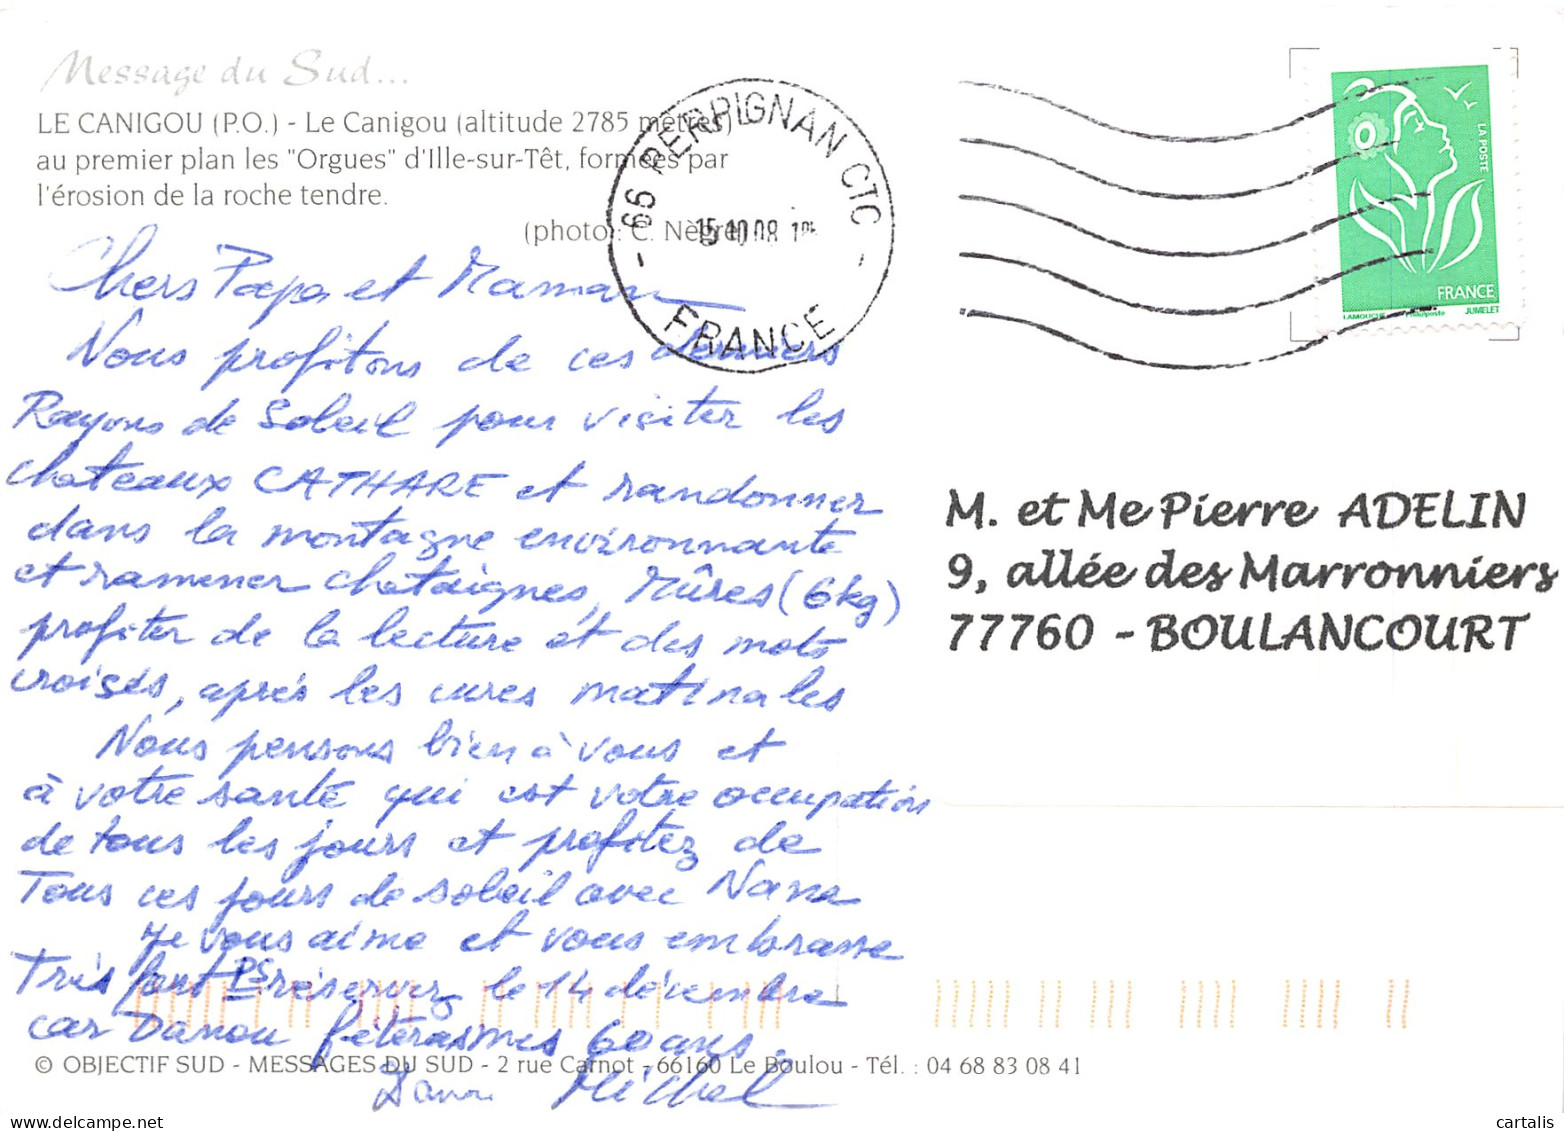 Message du Sud...
LE CANIGOU (P.O.) - Le Canigou (altitude 2785 mètres)
au premier plan les "Orgues" d'Ille-sur-Têt, formées par
l'érosion de la roche tendre.
(photo : C. Nègre)
- 66 PERPIGNAN CTC -
15.10.08
FRANCE
LA POSTE
FRANCE
LAMOUCHE Phil@poste JUMELET
Chers Papa et Maman
Nous profitons de ces derniers
Rayons de soleil pour visiter les
chateaux CATHARE et randonner
dans la montagne environnante
et ramener chataignes, Mûres (6kg)
profiter de la lecture et des mots
croisés, après les cures matinales
Nous pensons bien à vous et
à votre santé qui est votre occupation
de tous les jours et profitez de
Tous ces jours de soleil avec Nana
Je vous aime et vous embrasse
Très fort PS réservez le 14 décembre
car Danou fêterasmes 60 ans.
Danou Michel
M. et Me Pierre ADELIN
9, allée des Marronniers
77760 - BOULANCOURT
© OBJECTIF SUD - MESSAGES DU SUD - 2 rue Carnot - 66160 Le Boulou - Tél. : 04 68 83 08 41
www.cartalis.com